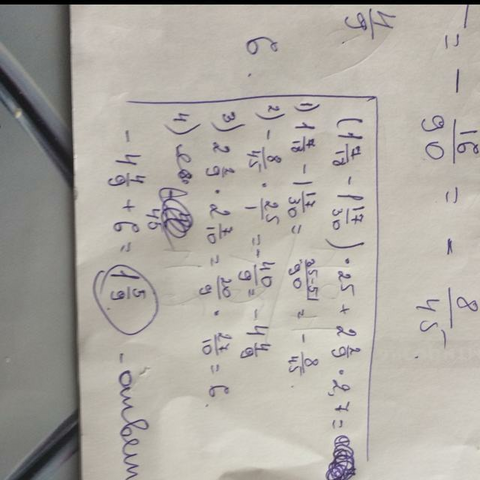 = - 16/90 = - 8/45
4/9
6.
(1 7/18 - 1 17/30) · 25 + 2 2/9 · 2,7 =
1) 1 7/18 - 1 17/30 = 35-51/90 = - 8/45.
2) - 8/45 · 25/1 = - 40/9 = - 4 4/9
3) 2 2/9 · 2 7/10 = 20/9 · 27/10 = 6.
4)
- 4 4/9 + 6 = 1 5/9 - ответ